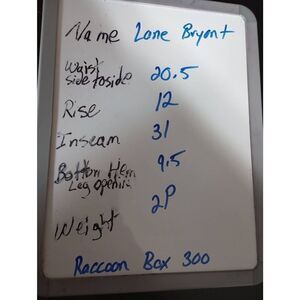 Name Lane Bryant
Waist
side to side 20.5
Rise 12
Inseam 31
Bottom Hem 9.5
Leg opening
Weight 2P
Raccoon Box 300